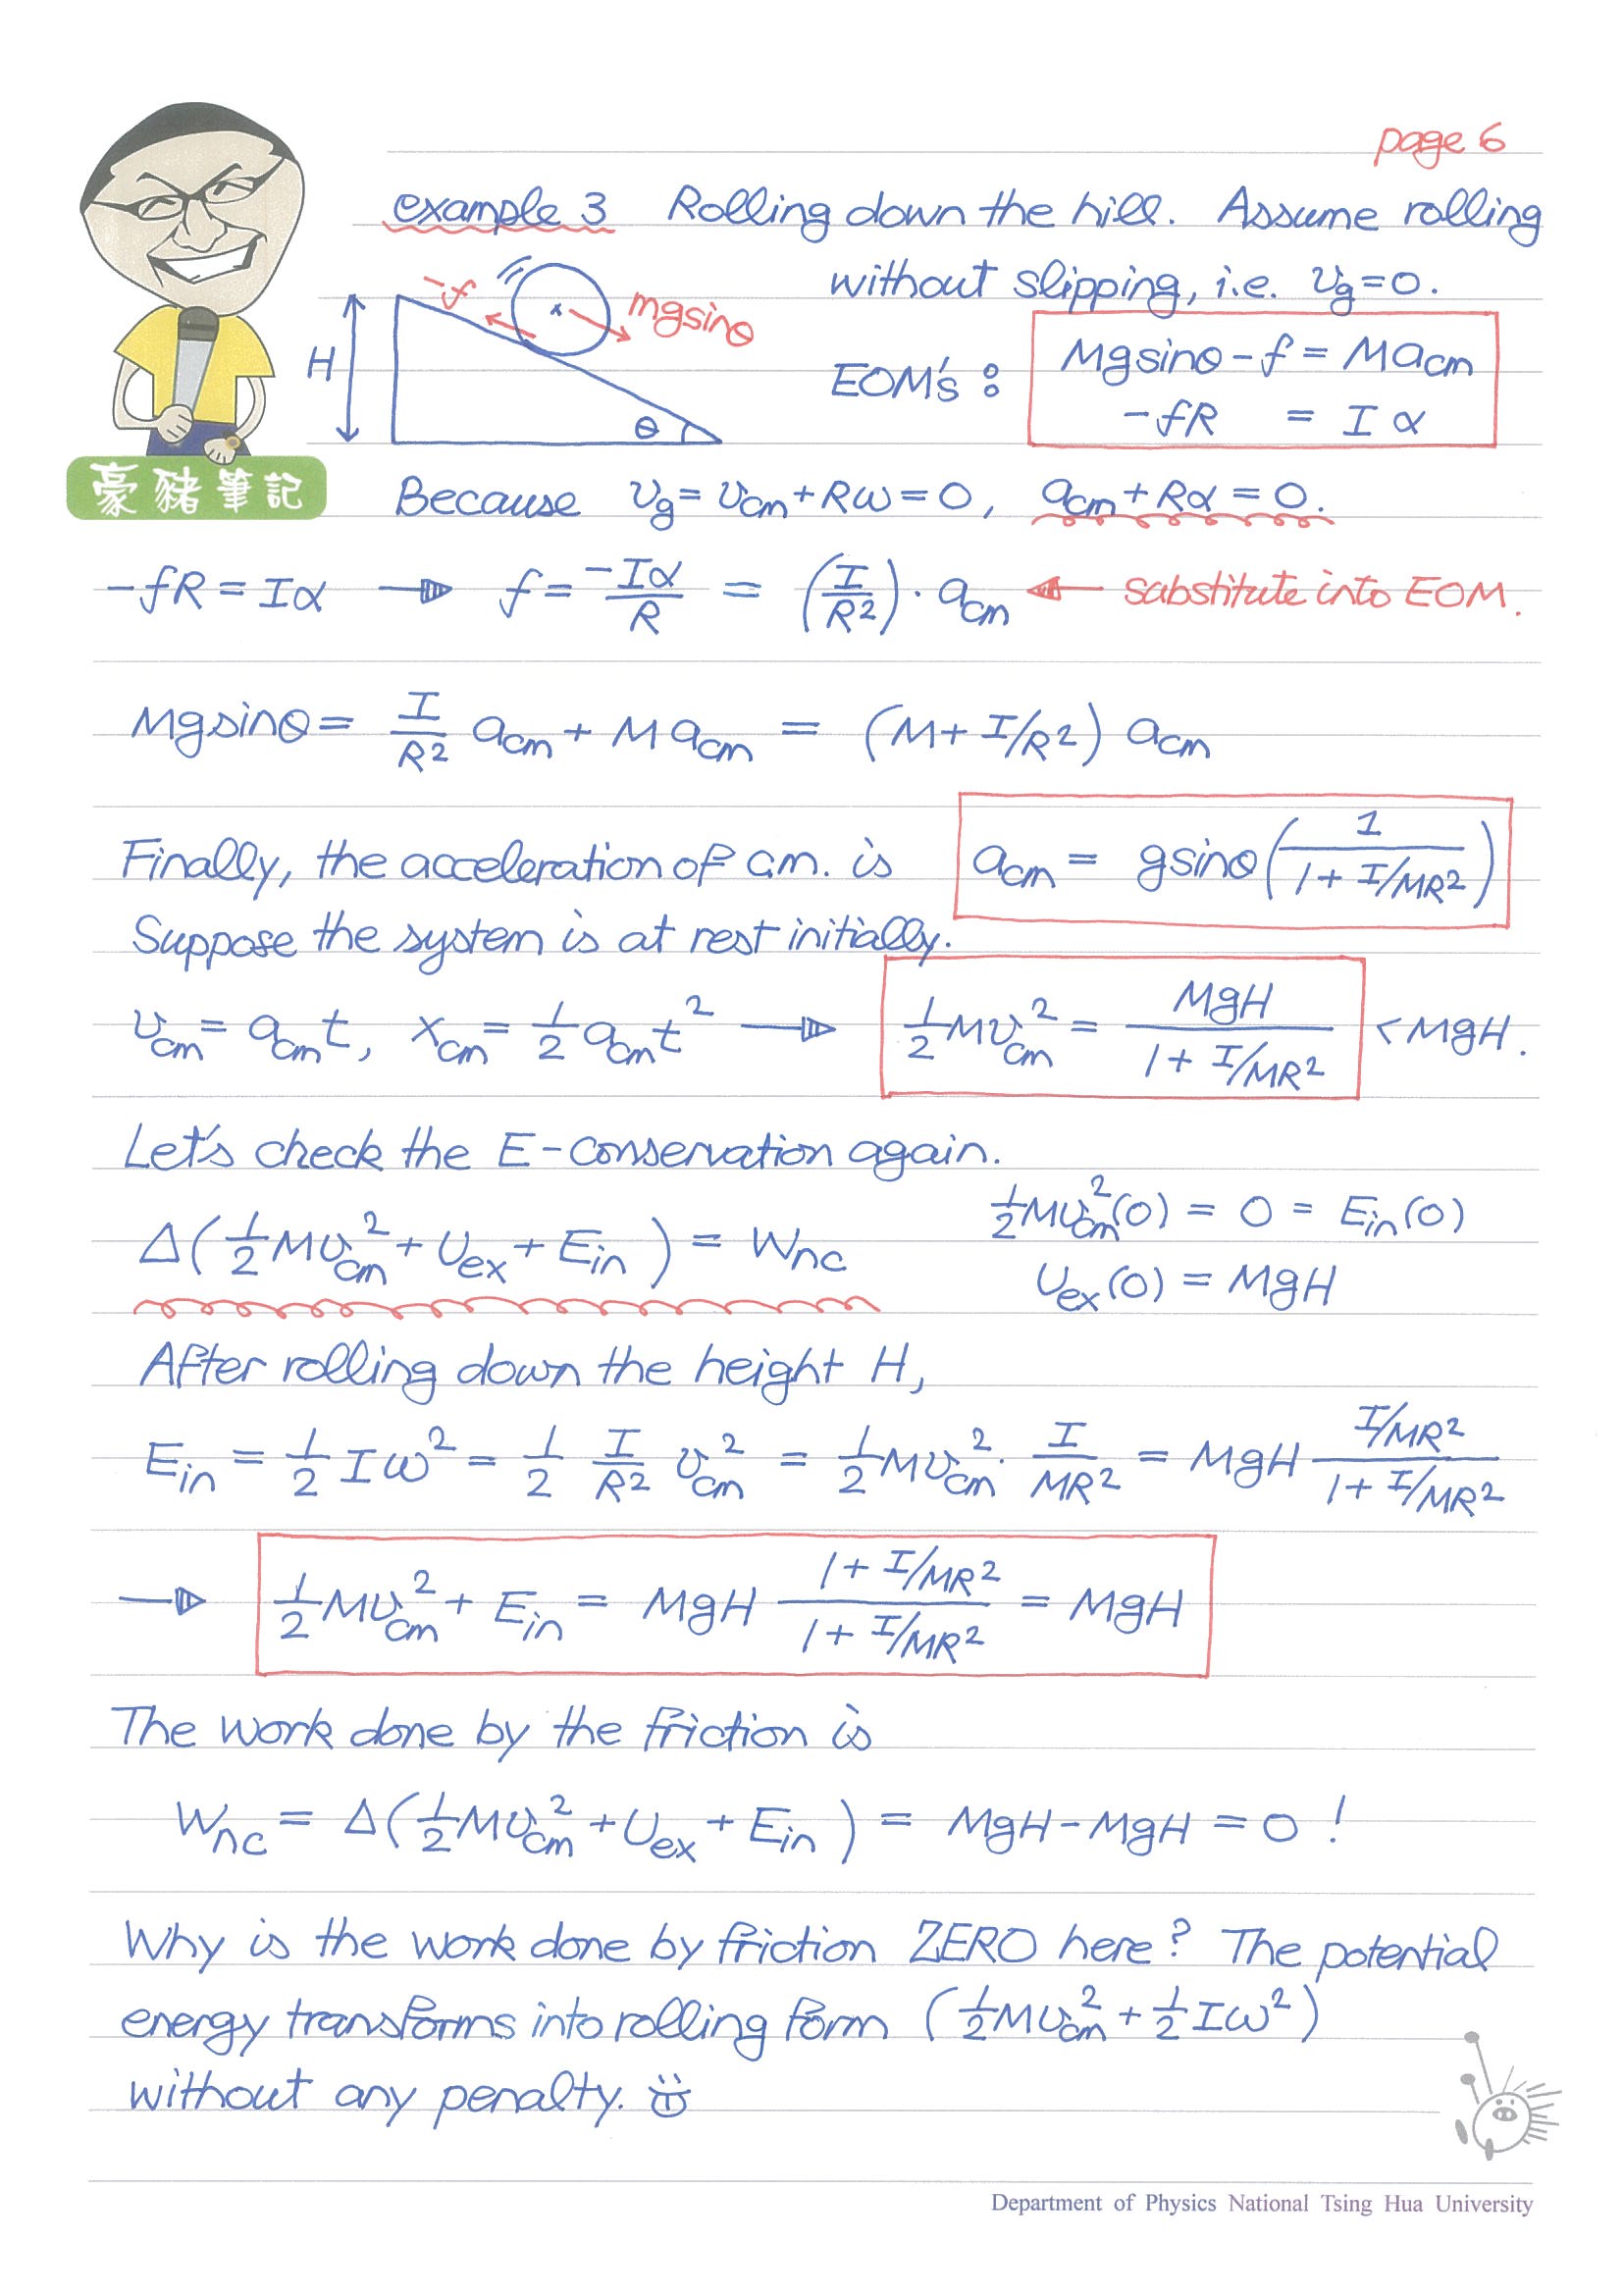 page 6
example 3 Rolling down the hill. Assume rolling
without slipping, i.e. v_g = 0.
-f
mgsinθ
H
θ
EOM's : Mgsinθ - f = Ma_cm
-fR = Iα
豪豬筆記
Because v_g = v_cm + Rω = 0, a_cm + Rα = 0.
-fR = Iα → f = -Iα/R = (I/R²) · a_cm ← substitute into EOM.
Mgsinθ = I/R² a_cm + M a_cm = (M + I/R²) a_cm
Finally, the acceleration of cm. is a_cm = gsinθ (1/(1 + I/MR²))
Suppose the system is at rest initially.
v_cm = a_cm t, x_cm = 1/2 a_cm t² → 1/2 Mv_cm² = MgH/(1 + I/MR²) < MgH.
Let's check the E-conservation again.
Δ(1/2 Mv_cm² + U_ex + E_in) = W_nc
1/2 Mv_cm²(0) = 0 = E_in(0)
U_ex(0) = MgH
After rolling down the height H,
E_in = 1/2 Iω² = 1/2 I/R² v_cm² = 1/2 Mv_cm² · I/MR² = MgH (I/MR²)/(1 + I/MR²)
→ 1/2 Mv_cm² + E_in = MgH (1 + I/MR²)/(1 + I/MR²) = MgH
The work done by the friction is
W_nc = Δ(1/2 Mv_cm² + U_ex + E_in) = MgH - MgH = 0 !
Why is the work done by friction ZERO here? The potential
energy transforms into rolling form (1/2 Mv_cm² + 1/2 Iω²)
without any penalty.
Department of Physics National Tsing Hua University